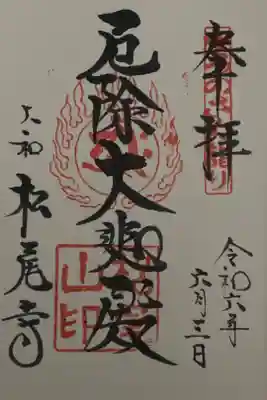 奉拝
令和六年
六月三日
厄除大悲殿
大和
松尾寺